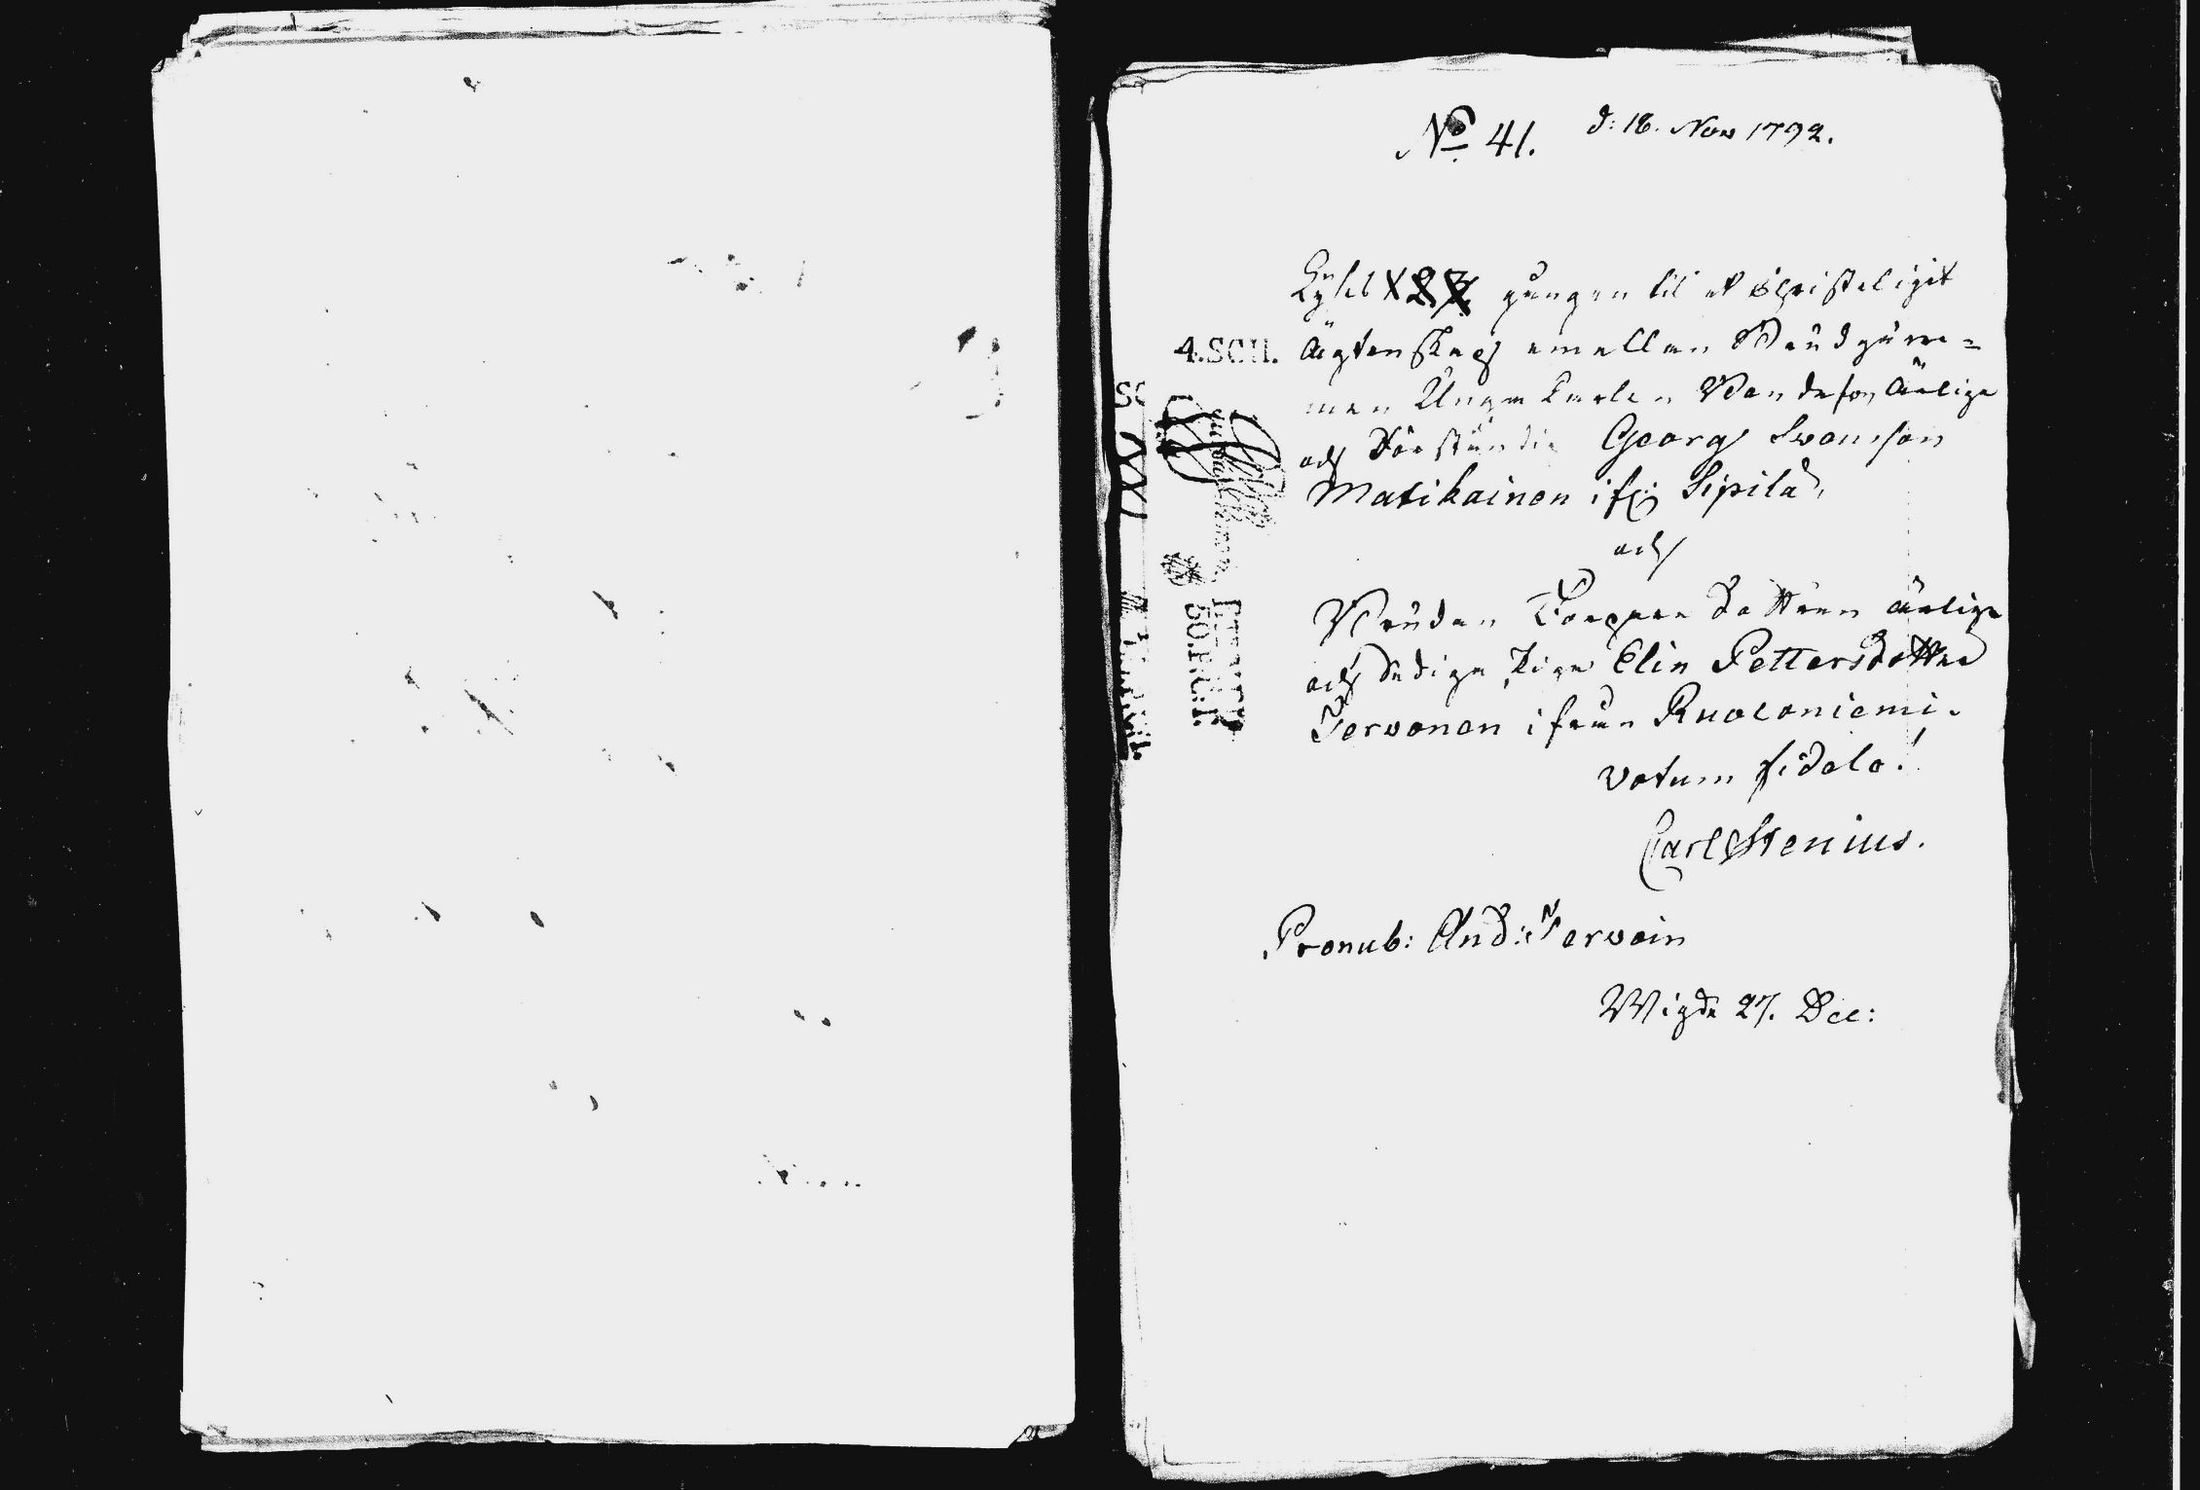 No 41. d: 18. Nov 1792.
Lyses gången til et Christeligit
4.SCH. Ägtenskap emellan Brudgum=
men Unga Karlen Bondeson Ärlige
och Förståndig Georg Svensson
Matikainen ifr: Sipilä,
och
Bruden dottren ärlige
och dydige Pigan Elin Pettersdotter
Tervonen ifrån Ruoconiemi.
votum fidele!
Carl Stenius.
Pronub: And: Tervoin
Wigde 27. Dec:
50.